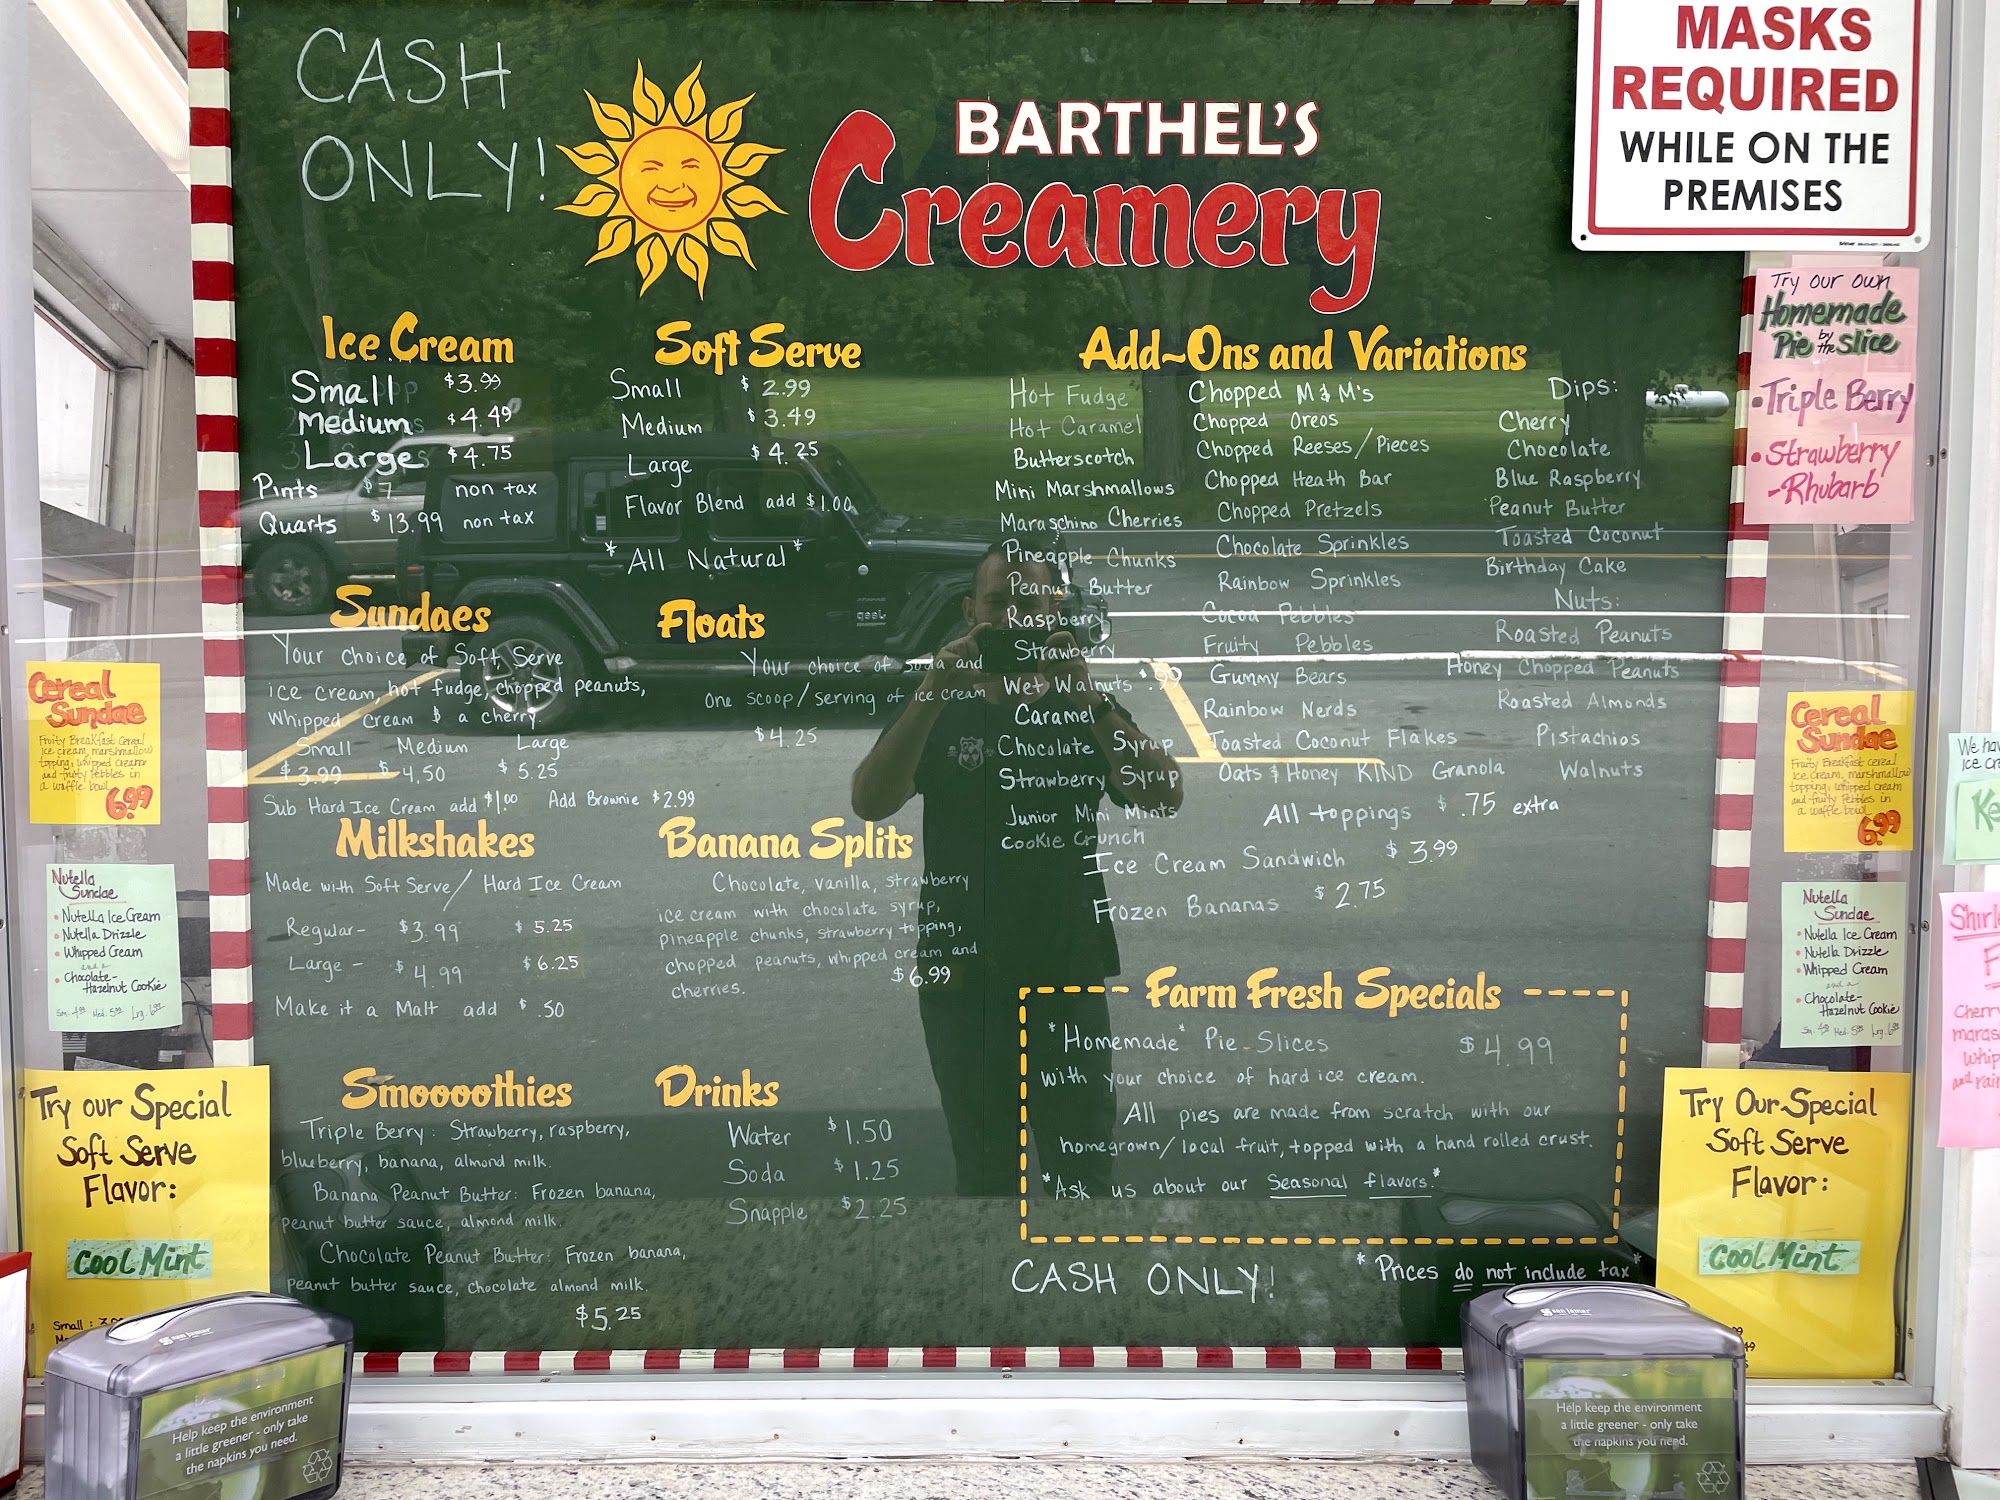 CASH
ONLY!
BARTHEL'S
Creamery
MASKS
REQUIRED
WHILE ON THE
PREMISES
Ice Cream
Small $3.99
Medium $4.49
Large $4.75
Pints $7. non tax
Quarts $13.99 non tax
Soft Serve
Small $2.99
Medium $3.49
Large $4.25
Flavor Blend add $1.00
*All Natural*
Sundaes
Your choice of Soft Serve
ice cream, hot fudge, chopped peanuts,
whipped cream & a cherry.
Small Medium Large
$3.99 $4.50 $5.25
Sub Hard Ice Cream add $1.00 Add Brownie $2.99
Floats
Your choice of soda and
one scoop/serving of ice cream
$4.25
Milkshakes
Made with Soft Serve/Hard Ice Cream
Regular- $3.99 $5.25
Large - $4.99 $6.25
Make it a Malt add $.50
Banana Splits
Chocolate, vanilla, strawberry
ice cream with chocolate syrup,
pineapple chunks, strawberry topping,
chopped peanuts, whipped cream and
cherries. $6.99
Smoooothies
Triple Berry: Strawberry, raspberry,
blueberry, banana, almond milk.
Banana Peanut Butter: Frozen banana,
peanut butter sauce, almond milk.
Chocolate Peanut Butter: Frozen banana,
peanut butter sauce, chocolate almond milk.
$5.25
Drinks
Water $1.50
Soda $1.25
Snapple $2.25
Add~Ons and Variations
Hot Fudge
Hot Caramel
Butterscotch
Mini Marshmallows
Maraschino Cherries
Pineapple Chunks
Peanut Butter
Raspberry
Strawberry
Wet Walnuts $.99
Caramel
Chocolate Syrup
Strawberry Syrup
Junior Mini Mints
Cookie Crunch
Chopped M&M's
Chopped Oreos
Chopped Reeses/Pieces
Chopped Heath Bar
Chopped Pretzels
Chocolate Sprinkles
Rainbow Sprinkles
Cocoa Pebbles
Fruity Pebbles
Gummy Bears
Rainbow Nerds
Toasted Coconut Flakes
Oats & Honey KIND Granola
Dips:
Cherry
Chocolate
Blue Raspberry
Peanut Butter
Toasted Coconut
Birthday Cake
Nuts:
Roasted Peanuts
Honey Chopped Peanuts
Roasted Almonds
Pistachios
Walnuts
All toppings $.75 extra
Ice Cream Sandwich $3.99
Frozen Bananas $2.75
Farm Fresh Specials
*Homemade* Pie Slices $4.99
with your choice of hard ice cream.
All pies are made from scratch with our
homegrown/local fruit, topped with a hand rolled crust.
*Ask us about our Seasonal flavors.*
CASH ONLY!
*Prices do not include tax*
Try our own
Homemade
Pie by the slice
•Triple Berry
•Strawberry
-Rhubarb
Cereal
Sundae
Fruity Breakfast Cereal
ice cream, marshmallow
topping, whipped cream
and fruity Pebbles in
a waffle bowl
6.99
Nutella
Sundae
• Nutella Ice Cream
• Nutella Drizzle
• Whipped Cream
and a
• Chocolate-
Hazelnut Cookie
Try our Special
Soft Serve
Flavor:
Cool Mint
Small:
Cereal
Sundae
Fruity Breakfast cereal
ice cream, marshmallow
topping, whipped cream
and fruity Pebbles in
a waffle bowl
6.99
Nutella
Sundae
• Nutella Ice Cream
• Nutella Drizzle
• Whipped Cream
and a
• Chocolate-
Hazelnut Cookie
Try Our Special
Soft Serve
Flavor:
Cool Mint
We
Cherry
and
san jamar
Help keep the environment
a little greener - only take
the napkins you need.
san jamar
Help keep the environment
a little greener - only take
the napkins you need.
Jeep